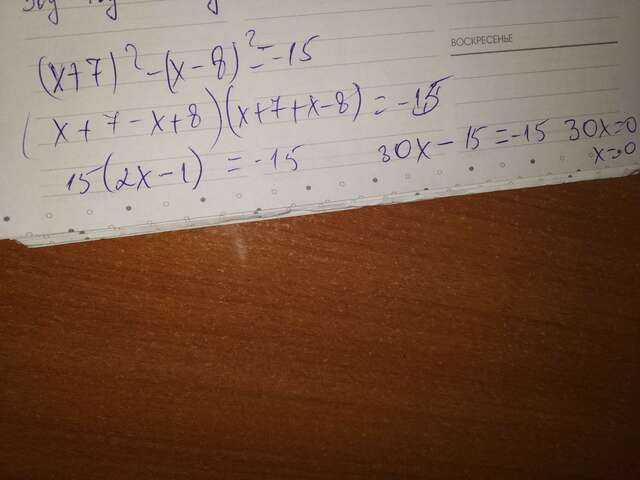 ВОСКРЕСЕНЬЕ
(x+7)²-(x-8)²=-15
(x+7-x+8)(x+7+x-8)=-15
15(2x-1)=-15 30x-15=-15 30x=0
x=0